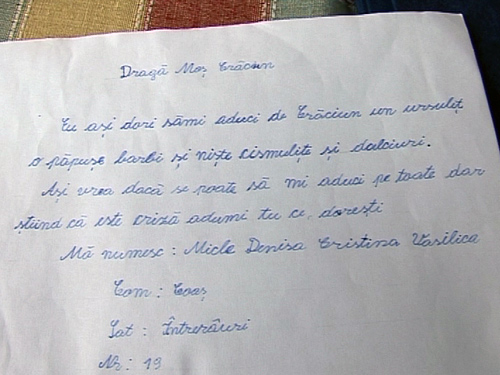 Dragă Moș Crăciun
Eu ași dori sămi aduci de Crăciun un ursuliț
o păpușe barbi și niște cismulițe și dalciuri.
Ași vrea dacă se poate să mi aduci pe toate dar
știind că este criză adumi tu ce dorești
Mă numesc : Micle Denisa Cristina Vasilica
Com : Coaș
Sat : Întrerâuri
Nr : 19